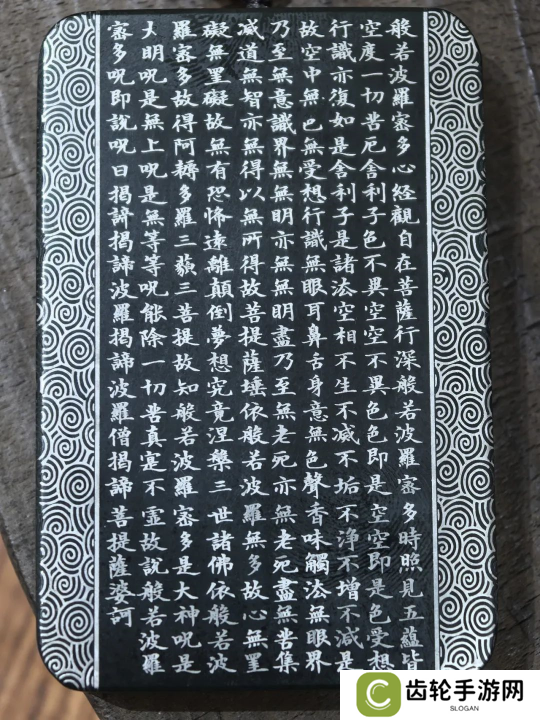 般若波羅密多心經觀自在菩薩行深般若波羅密多時照見五蘊皆
空度一切苦厄舍利子色不異空空不異色色即是空空即是色受想
行識亦復如是舍利子是諸法空相不生不滅不垢不淨不增不減是
故空中無色無受想行識無眼耳鼻舌身意無色聲香味觸法無眼界
乃至無意識界無無明亦無無明盡乃至無老死亦無老死盡無苦集
滅道無智亦無得以無所得故菩提薩埵依般若波羅無多故心無罣
礙無罣礙故無有恐怖遠離顛倒夢想究竟涅槃三世諸佛依般若波
羅密多故得阿耨多羅三藐三菩提故知般若波羅密多是大神呪是
大明呪是無上呪是無等等呪能除一切苦真寔不虛故說般若波羅
密多呪即說呪曰揭諦揭諦波羅揭諦波羅僧揭諦菩提薩婆訶
齿轮手游网
SLOGAN